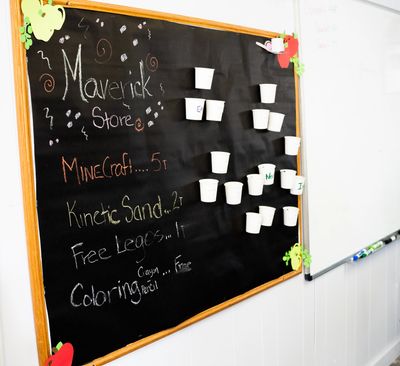 Maverick
Store
MineCraft.... 5T
Kinetic Sand.. 2T
Free Legos... 1T
Coloring Crayon Pencil ... Free